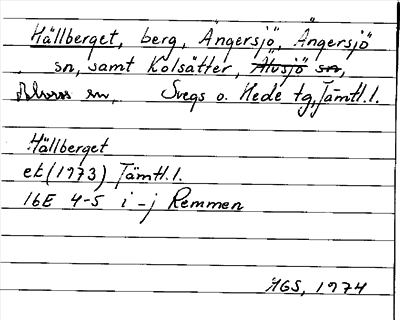 Hällberget, berg, Ängersjö, Ängersjö
sn, samt Kolsätter, Älvsjö sn,
sn, Svegs o. Hede tg, Jämtl. l.
Hällberget
ek (1973) Jämtl. l.
16E 4-5 i-j Remmen
AGS, 1974